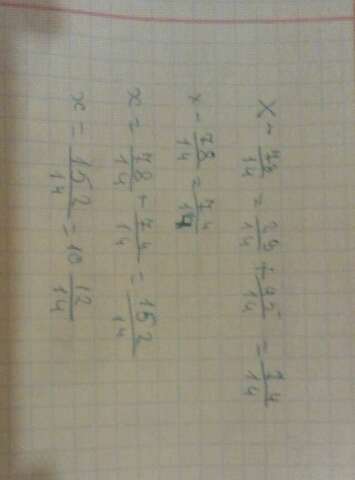 X - 78/14 = /14 + /14 = 74/14
x - 78/14 = 74/14
x = 78/14 + 74/14 = 152/14
x = 152/14 = 10 12/14